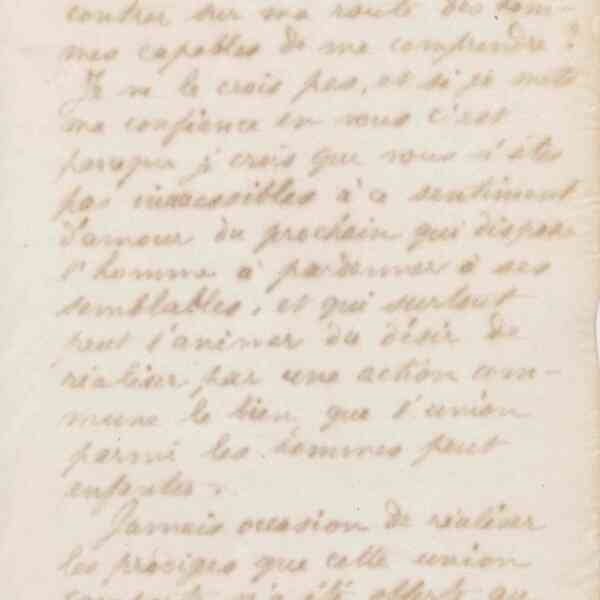 contrer sur ma route des hom-
mes capables de me comprendre ?
Je ne le crois pas, et si je mets
ma confiance en vous c'est
parceque je crois que vous n'êtes
pas inaccessibles à ce sentiment
d'amour du prochain qui dispose
l'homme à pardonner à ses
semblables, et qui surtout
peut l'animer du désir de
réaliser par une action com-
mune le bien que l'union
parmi les hommes peut
enfanter.
Jamais occasion de réaliser
les prodiges que cette union
comporte n'a été offerte au